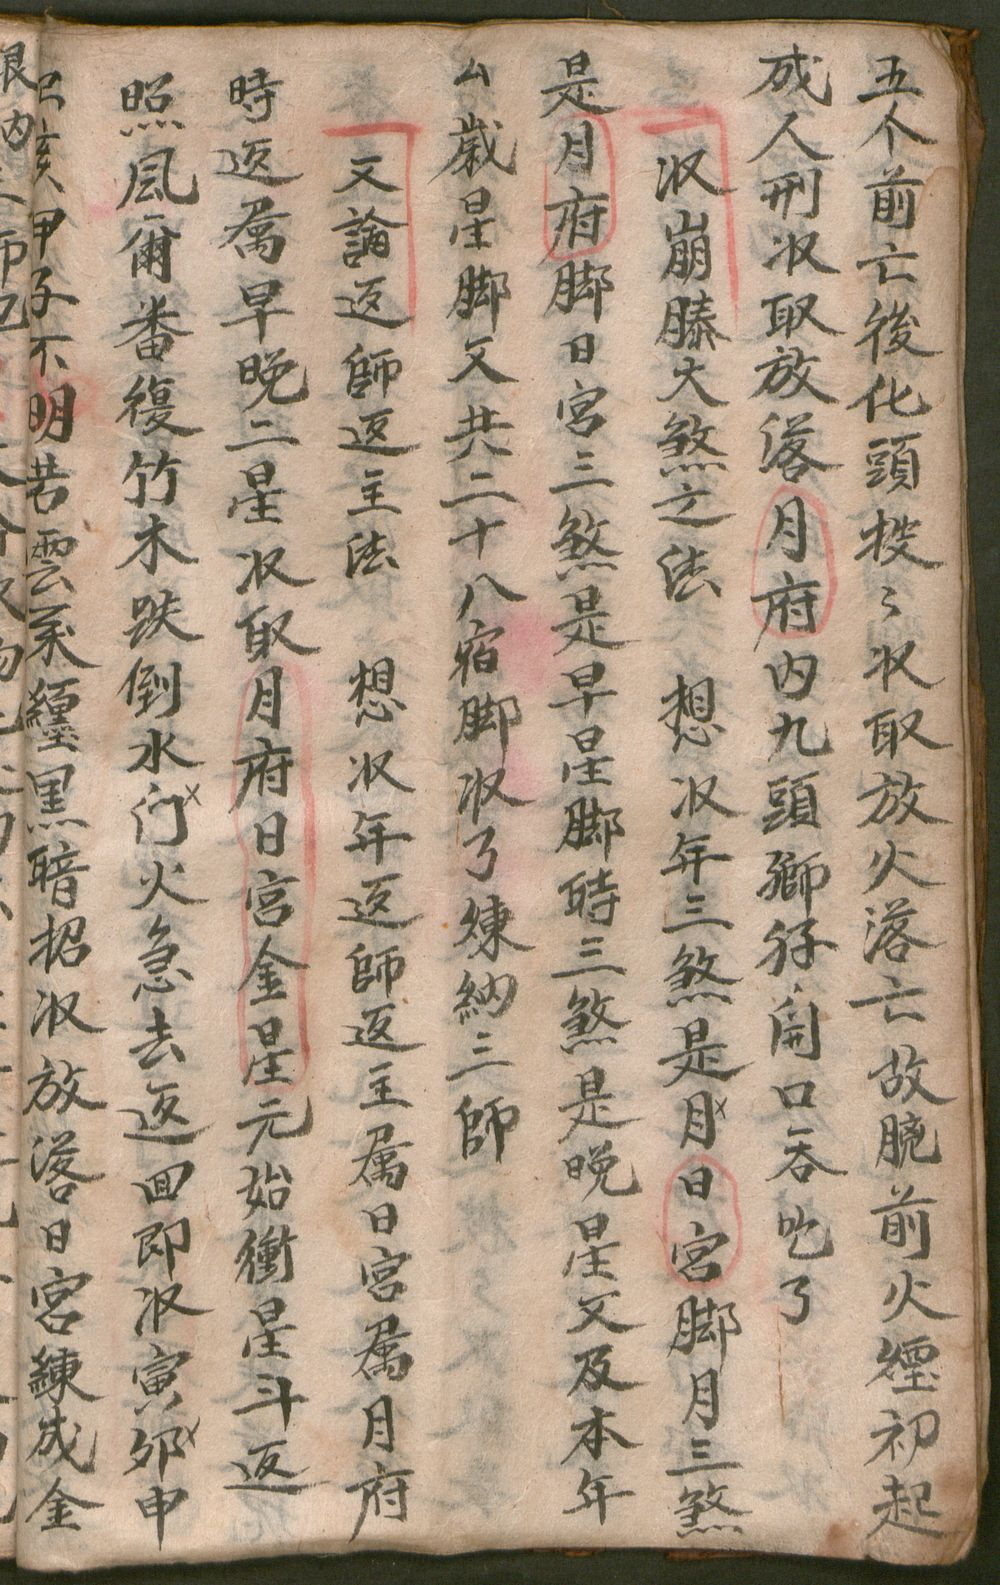 五个前亡後化頭挍〻収取放火落亡故脕前火煙初起
成人刑収取放落月府内九頭獅仔開口吞吃了
収崩膝大煞之法 想収年三煞是月日宮脚月三煞
是月府脚日宮三煞是早星脚時三煞是晚星又及本年
厶歲星脚又共二十八宿脚収了煉納三師
又論返師返主法 想収年返師返主属日宮属月府
時返属早晚二星収取月府日宮金星元始衝星斗返
照風甭番復竹木跌倒水门火急去返回即収寅夘申
巳亥甲子不明昔雲系纏黒暗招収放落日宮練成金